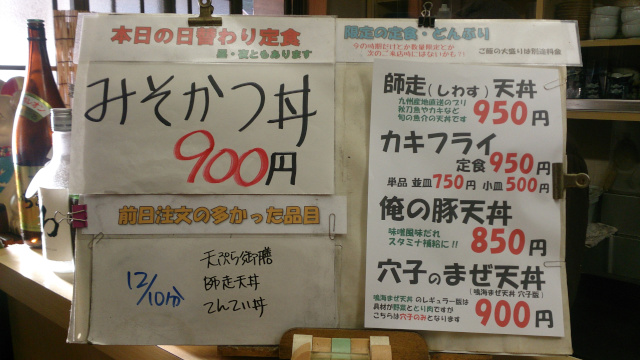 本日の日替わり定食
昼・夜ともあります
みそかつ丼
900円
前日注文の多かった品目
12/10分
天ぷら御膳
師走天丼
てんてい丼
限定の定食・どんぶり
今の時期だけとか数量限定とか
ご飯の大盛りは別途料金
師走(しわす)天丼
九州産地直送のブリ
秋刀魚やカキなど
旬の魚介の天丼です
950円
カキフライ
定食950円
単品 並皿750円 小皿500円
俺の豚天丼
味噌風味だれ
スタミナ補給に!!
850円
穴子のまぜ天丼
(鳴海まぜ天丼 穴子版)
鳴海まぜ天丼 のレギュラー版は
具材が野菜ととり肉ですが
こちらは穴子のみとなります
900円